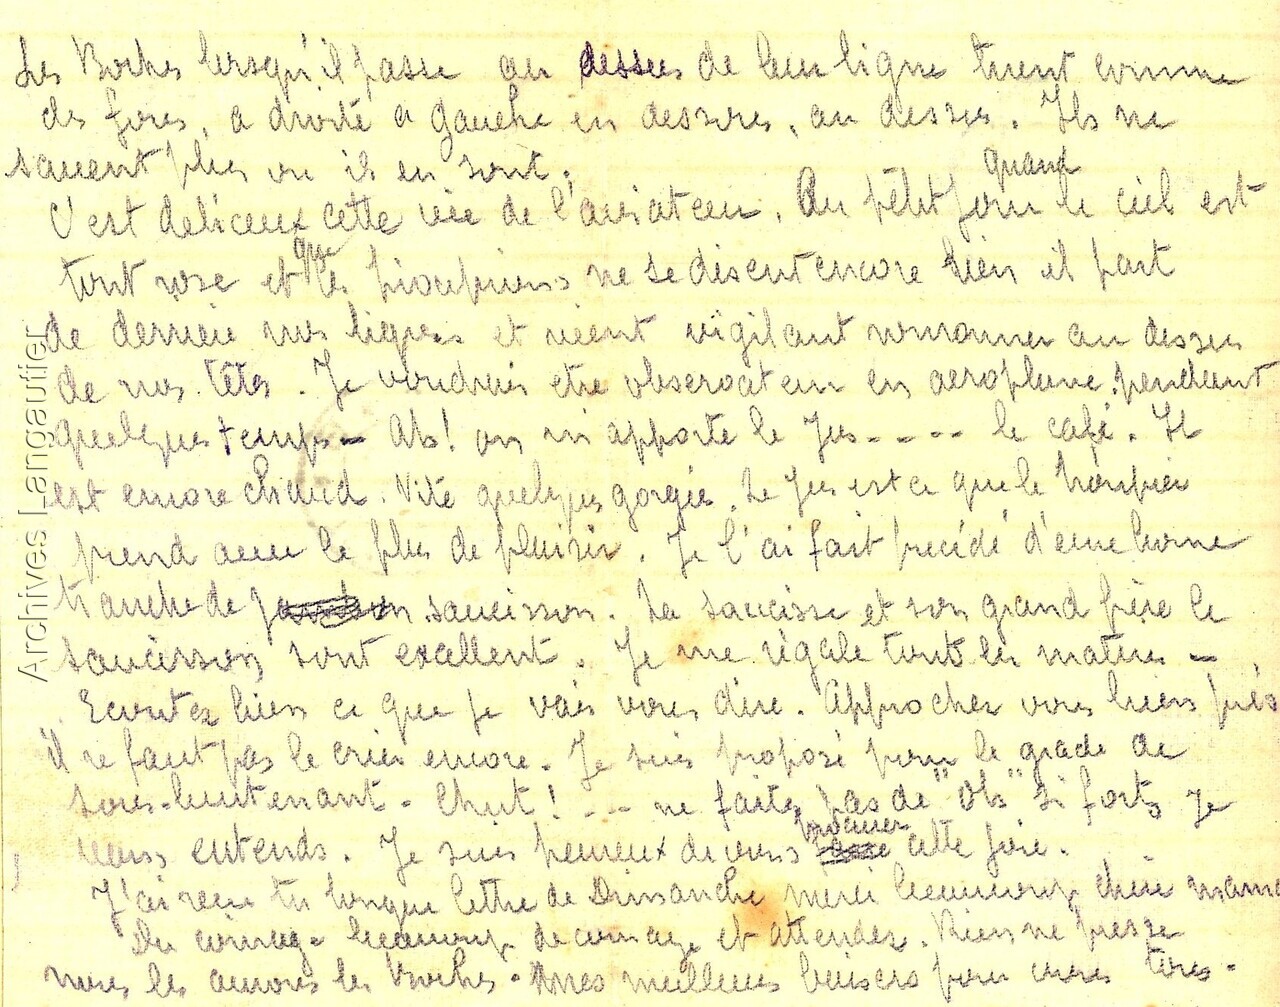 Les Boches lorsqu'il passe au dessus de leur ligne tirent comme
des fous, a droite a gauche en dessous, au dessus. Ils ne
savent plus ou il en sont.
C'est delicieux cette vie de l'aviateur. Au petit jour quand le ciel est
tout rose et que les pioupious ne se disent encore rien il part
de derriere nos lignes et vient vigilant ronronner au dessus
de nos têtes. Je voudrais etre observateur en aeroplane pendant
quelques temps - Ah! on m'apporte le Jus - - - - le café. Il
est encore chaud. Vite quelques gorgées. Le Jus est ce que le troupier
prend avec le plus de plaisir. Je l'ai fait précédé d'une bonne
tranche de saucisson. La saucisse et son grand frère le
saucisson sont excellent. Je me régale tous les matins -
Ecoutez bien ce que je vais vous dire. Approchez vous bien près
il ne faut pas le crier encore. Je suis proposé pour le grade de
sous-lieutenant - Chut! - - ne faites pas de "Oh" si forts je
vous entends. Je suis heureux de vous procurer cette joie.
J'ai recu ta longue lettre de Dimanche merci beaucoup chère mama
Du courage beaucoup de courage et attendez. Rien ne presse
nous les aurons les Boches. Mes meilleurs baisers pour vous tous.
Archives Langautier